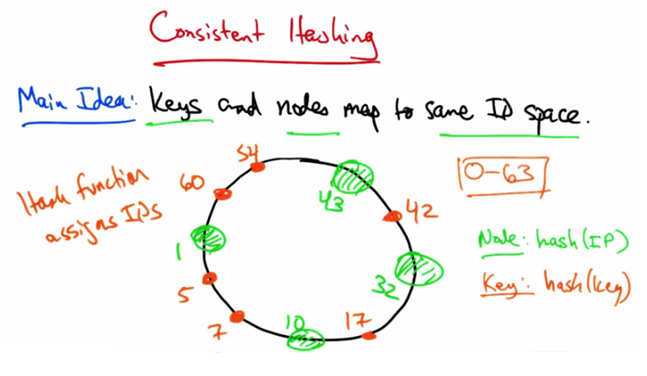 Consistent Hashing
Main Idea: Keys and nodes map to same ID space.
Hash function
assigns IDs
54
60
43
0-63
42
1
Node: hash(IP)
32
Key: hash(key)
5
7
10
17